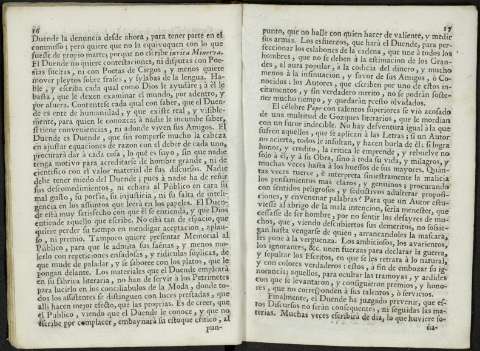 16
Duende la denuncia desde ahora, para tener parte en el
comisso; pero quiere que no la equivoquen con lo que
fuese de propio marte; porque no escribe invita Minerva.
El Duende no quiere contestaciones, ni disputas con Poe-
sias sucias, ni con Poetas de Ciegos, y menos quiere
mover pleytos sobre frases, y sylabas de la lengua. Ha-
ble, y escriba cada qual como Dios le ayudare; à él le
basta, que le dexen examinar el mundo, por adentro, y
por afuera. Contentese cada qual con saber, que el Duen-
de es ente de humanidad, y que existe real, y visible-
mente, para quien le conozca; à nadie le incumbe saber,
si tiene conveniencias, ni adonde viven sus Amigos. El
Duende es Duende, que sin romperse mucho la cabeza
en ajustar equaciones de razon con el deber de cada uno,
procurará dar à cada cosa, lo que es suyo, sin que nadie
tenga motivo para acreditarse de hombre grande, ni de
cientifico con el valor material de sus discursos. Nadie
debe tener miedo del Duende; pues à nadie ha de notar
sus descomedimientos, ni echará al Público en cara su
mal gusto, su poesía, su injusticia, ni su falta de inteli-
gencia en los assuntos que lleva en los papeles. El Duen-
de está muy satisfecho con que él se entienda, y que Dios
entiende aquello que escribe. No está tan de espacio, que
quiere perder su tiempo en mendigar aceptacion, aplau-
so, ni premio. Tampoco quiere presentar Memorial al
Público, para que le admita sus faenas, y menos mo-
lerlo con repeticiones enfadosas, y ridiculas súplicas, de
que mude de paladar, y se saboree con los platos, que le
pongan delante. Los materiales que el Duende empleará
en su fabrica literaria, no han de servir à los Petimetres
para lucirlo en los conciliabulos de la Moda, donde to-
dos los assistentes se distinguen con luces prestadas, que
allí hacen mejor efecto, que las propias. Es de creer, que
el Público, viendo que el Duende le conoce, y que no
escribe por complacer, embaynará su estoque critico, al
pun-
17
punto, que no halle con quien hacer de valiente, y medir
sus armas. Los esfuerzos, que hará el Duende, para per-
feccionar los eslabones de la cadena, que une à todos los
hombres, que no se deben à la estimacion de los Gran-
des, al aura popular, à la codicia del dinero, y mucho
menos à la insinuacion, y favor de sus Amigos, ò Co-
nocidos: los Autores, que escriben por uno de estos in-
citamentos, y sin verdadero merito, no se podrán soste-
ner mucho tiempo, y quedarán recibo olvidados.
El célebre Pope con talentos superiores se vió acosado
de una multitud de Gozques literarios, que le mordian
con un furor indecible. No hay desventura igual à la que
sufren aquellos, que se aplican à las Letras; si un Autor
no acierta, todos le insultan, y hacen burla de él; si logra
honor, y credito, la critica le emprende, y rebuelve no
solo à él, y à su Obra, sino à toda su vida, y milagros, y
muchas veces hasta à los huesos de sus mayores. Quan-
tas veces tuerce, è interpreta siniestramente la malicia
los pensamientos mas claros, y genuinos; procurando
con sentidos peligrosos, y seductivos adulterar proposi-
ciones, y envenenar palabras? Para que un Autor estu-
viesse al abrigo de la mala intencion, sería menester, que
cessasse de ser hombre, por no sentir los desayres de mu-
chos, que, viendo descubiertos sus demeritos, no sosie-
gan hasta vengarse de quien, arrancandoles la mascara,
les pone à la verguenza. Los ambiciosos, los avarientos,
los ignorantes, &c. unen fuerzas para declarar la guerra,
y sepultar los Escritos, en que se les retrata à lo natural,
y con colores verdaderos: estos, à fin de embozar su ig-
norancia; aquellos, para ocultar las tramoyas, y ardides
con que se levantaron, y consiguieron premios, y hono-
res, que no corresponden à sus talentos, ò servicios.
Finalmente, el Duende ha juzgado prevenir, que es-
tos Discursos no serán consequentes, ni seguidas las ma-
terias. Muchas veces escribirá de dia, lo que huviere so-
ña-